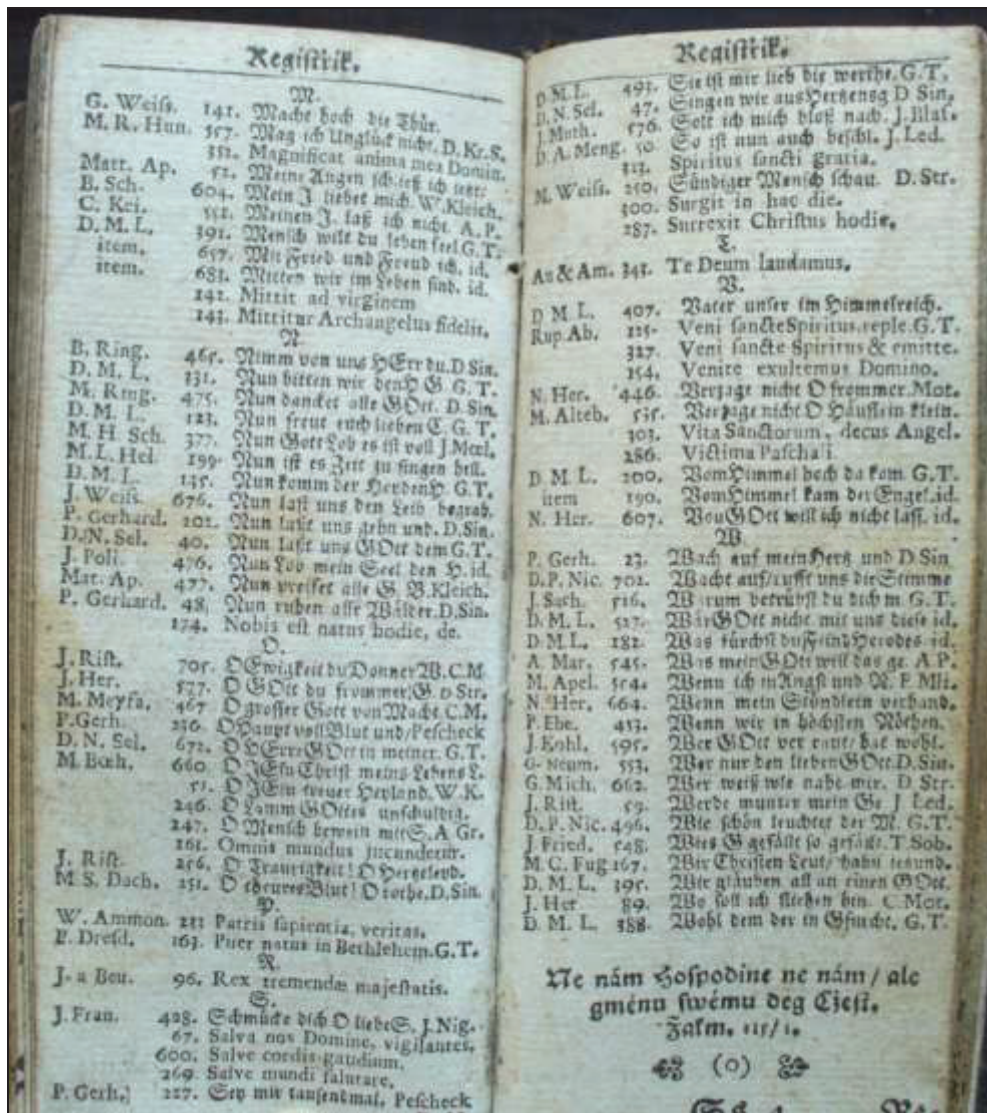 Registřik.
M.
G. Weiß. 141. Macht hoch die Thür.
M. R. Hun. 357. Mag ich Unglück nicht. D. Kr. S.
351. Magnificat anima mea Domin.
Matt. Ap. 52. Meine Augen schließ ich
B. Sch. 604. Mein J. liebet mich. W. Kleich.
C. Kei. 551. Meinen J. laß ich nicht. A. P.
D. M. L. 391. Mensch wilt du leben seel G. T.
item. 657. Mit Fried und Freud ich. id.
item. 681. Mitten wir im Leben sind. id.
142. Mittit ad virginem
143. Mittitur Archangelus fidelis.
N.
B. Ring. 465. Nimm von uns HErr du. D Sin.
D. M. L. 331. Nun bitten wir den H G. G. T.
M. Ring. 475. Nun dancket alle GOtt. D. Sin.
D. M. L. 123. Nun freut euch lieben C. G. T.
M. H Sch. 377. Nun Gott Lob es ist voll J. Mœl.
M. L. Hel. 199. Nun ist es Zeit zu singen hell.
D. M. L. 135. Nun komm der Heyden H. G. T.
J. Weiß. 676. Nun last uns den Leib begrab.
P. Gerhard. 202. Nun laßt uns gehn und. D. Sin.
D. N. Sel. 40. Nun laßt uns GOtt dem G. T.
J. Poli. 476. Nun Lob mein Seel den H. id.
Mat. Ap. 477. Nun preiset alle G. B. Kleich.
P. Gerhard. 48. Nun ruhen alle Wälder. D. Sin.
174. Nobis est natus hodie, de.
O.
J. Rist. 705. O Ewigkeit du Donner W. C. M
J. Her. 577. O GOtt du frommer G. D Str.
M. Meyfa. 467 O grosser Gott von Macht. C. M.
P. Gerh. 236. O Haupt voll Blut und/ Pescheck
D. N. Sel. 672. O HErre GOtt in meiner. G. T.
M. Bœh. 660 O JEsu Christ meins Lebens L.
51. O JEsu treuer Heyland. W. K.
246. O Lamm GOttes unschuldig.
247. O Mensch bewein mit S. A Gr.
161. Omnis mundus jucundetur.
J. Rist. 256. O Traurigkeit! O Hertzeleyd.
M S. Dach. 251. O theures Blut! O rothe. D. Sin.
P.
W. Ammon. 231 Patris sapientia, veritas.
P. Dresd. 163. Puer natus in Bethlehem. G. T.
R.
J. a Beu. 96. Rex tremendæ majestatis.
S.
J. Fran. 428. Schmücke dich O liebe S. J. Nig.
67. Salva nos Domine, vigilantes.
600. Salve cordis gaudium.
269. Salve mundi salutare.
P. Gerh. 227. Sey mir tausendmal. Pescheck
Registřik.
D. M. L. 493. Sie ist mir lieb die werthe. G. T.
D. N. Sel. 47. Singen wir aus Hertzensg D Sin.
J. Muth. 576. Solt ich mich bloß nach. J. Blas.
D. A. Meng. 50. So ist nun auch beschl. J. Led.
313. Spiritus sancti gratia.
M. Weiß. 250. Sündiger Mensch schau. D. Str.
300. Surgit in hac die.
287. Surrexit Christus hodie.
T.
Au & Am. 341. Te Deum laudamus.
V.
D M L. 407. Vater unser im Himmelreich.
Rup. Ab. 325. Veni sancte Spiritus. reple. G. T.
327. Veni sancte Spiritus & emitte.
154. Venite exultemus Domino.
N. Her. 446. Verzage nicht O frommer. Mot.
M. Alteb. 535. Verzage nicht O Häuflein klein.
303. Vita Sanctorum, decus Angel.
286. Victima Paschali.
D M. L. 200. Vom Himmel hoch da kom. G. T.
item 190. Vom Himmel kam der Engel. id.
N. Her. 607. Von GOtt will ich nicht lass. id.
W.
P. Gerh. 23. Wach auf mein Hertz und D Sin
D. P. Nic. 702. Wachet auf/ rufft uns die Stimme
J. Sach. 516. Warum betrübst du dich m. G. T.
D. M. L. 527. Wär GOtt nicht mit uns diese id.
D M L. 182. Was fürchst du Feind Herodes id.
A. Mar. 545. Was mein GOtt will das ge. A P.
M. Apel. 504. Wenn ich in Angst und N. F. Mli.
N. Her. 664. Wenn mein Stündlein vorhand.
P. Ebe. 453. Wenn wir in höchsten Nöthen.
J. Kohl. 595. Wer GOtt vertraut/ hat wohl.
G. Neum. 553. Wer nur den lieben GOtt. D. Sin.
G. Mich. 662. Wer weiß wie nahe mir. D Str.
J. Rist. 59. Werde munter mein Ge. J Led.
D. P. Nic. 496. Wie schön leuchtet der M. G. T.
J. Fried. 548. Wies G gefällt so gefällt. T. Sob.
M. C. Fug 167. Wir Christen Leut/ habn jetzund.
D. M. L. 395. Wir glauben all an einen GOtt.
J. Her 89. Wo soll ich fliehen hin. C. Mot.
D. M. L. 388. Wohl dem der in Gfurcht. G. T.
Ne nám Hospodine ne nám / ale
gménu swému deg Cžest.
Žalm. 115/ 1.
(0)